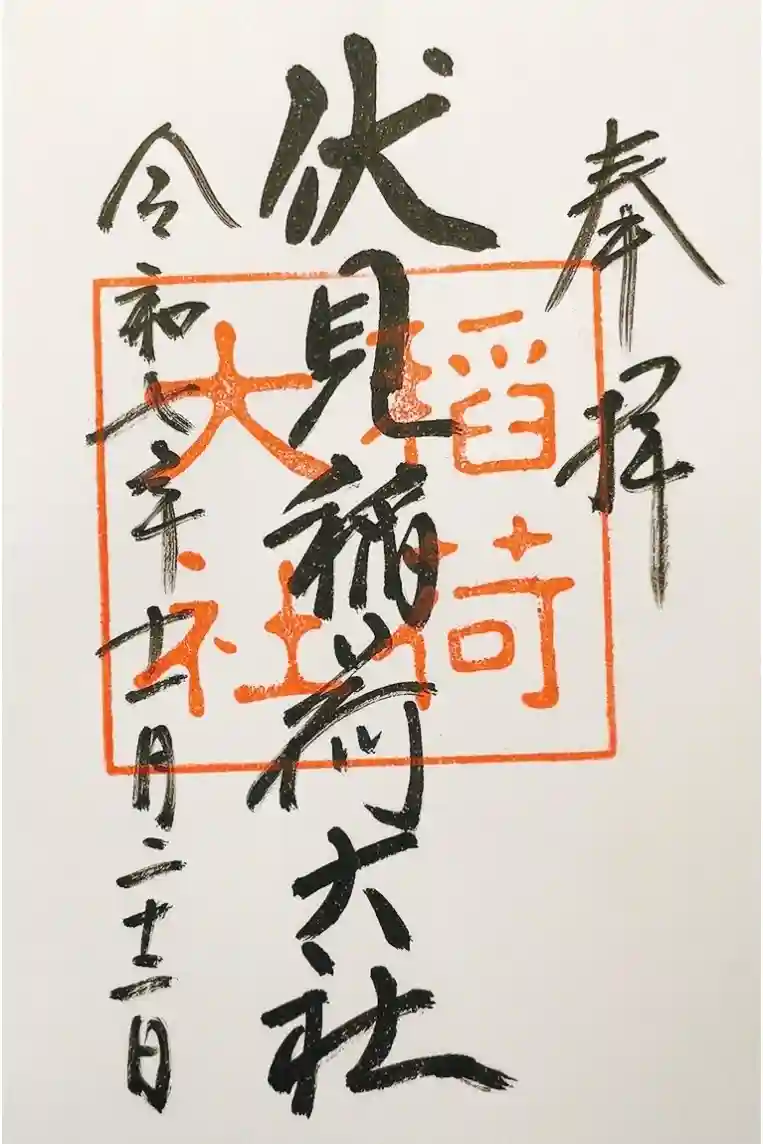 奉拝
伏見稲荷大社
稲荷
大社
令和七年十一月二十一日